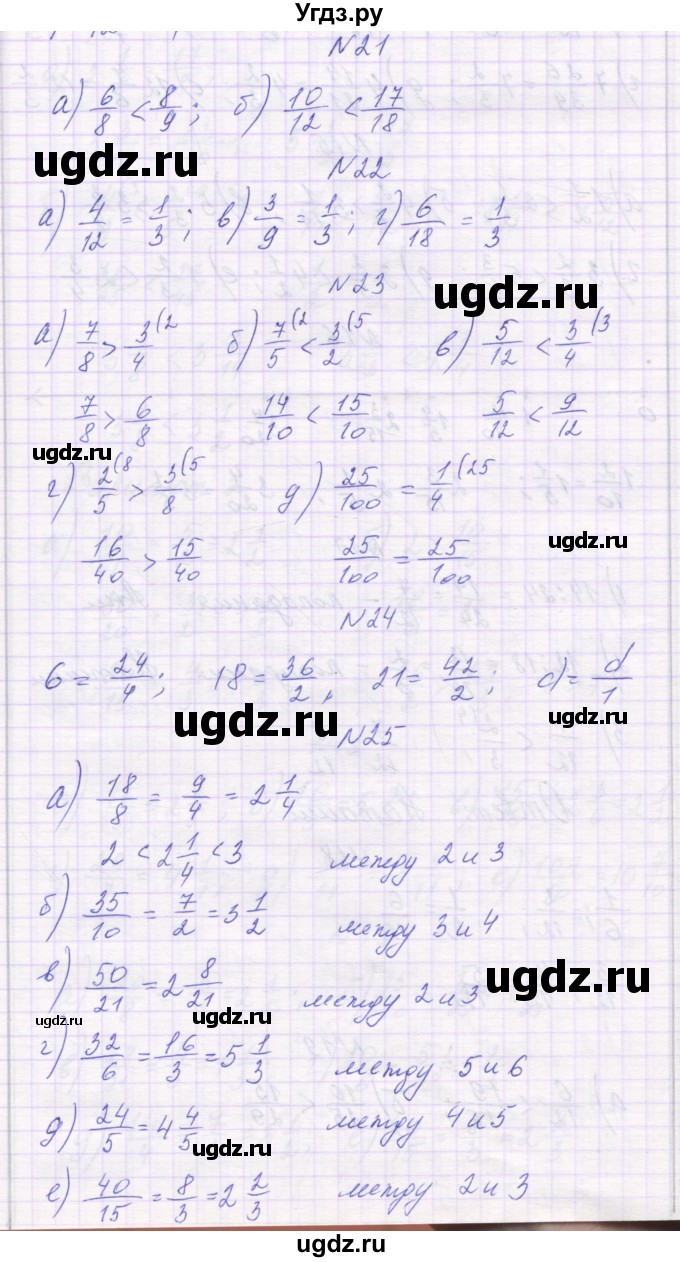 Угдз.ру
N21
а) 6/8 < 8/9; б) 10/12 < 17/18
ugdz.ru
N22
а) 4/12 = 1/3; в) 3/9 = 1/3; г) 6/18 = 1/3
N23
ugdz.ru
а) 7/8 > 3/4 (2 б) 7/5 (2 < 3/2 (5 в) 5/12 < 3/4 (3
7/8 > 6/8 14/10 < 15/10 5/12 < 9/12
ugdz.ru
г) 2/5 (8 > 3/8 (5 д) 25/100 = 1/4 (25
16/40 > 15/40 25/100 = 25/100
ugdz.ru
N24
6 = 24/4; 18 = 36/2, 21 = 42/2; d = d/1
ugdz.ru
N25
а) 18/8 = 9/4 = 2 1/4
2 < 2 1/4 < 3 между 2 и 3
б) 35/10 = 7/2 = 3 1/2 между 3 и 4
в) 50/21 = 2 8/21 между 2 и 3
ugdz.ru
ugdz.ru
ugdz.ru
г) 32/6 = 16/3 = 5 1/3 между 5 и 6
д) 24/5 = 4 4/5 между 4 и 5
ugdz.ru
е) 40/15 = 8/3 = 2 2/3 между 2 и 3
ugdz.ru